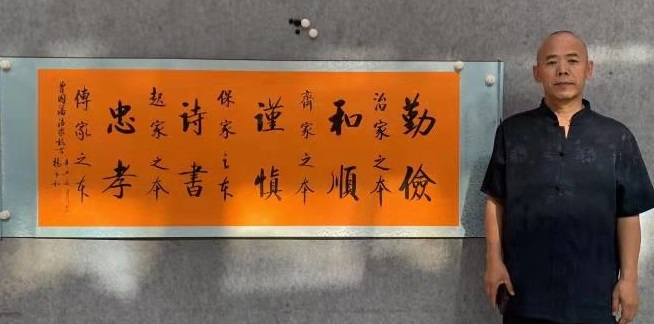 勤儉
治家之本
和順
齊家之本
謹慎
保家之本
诗書
起家之本
忠孝
傳家之本
曾國藩治家格言